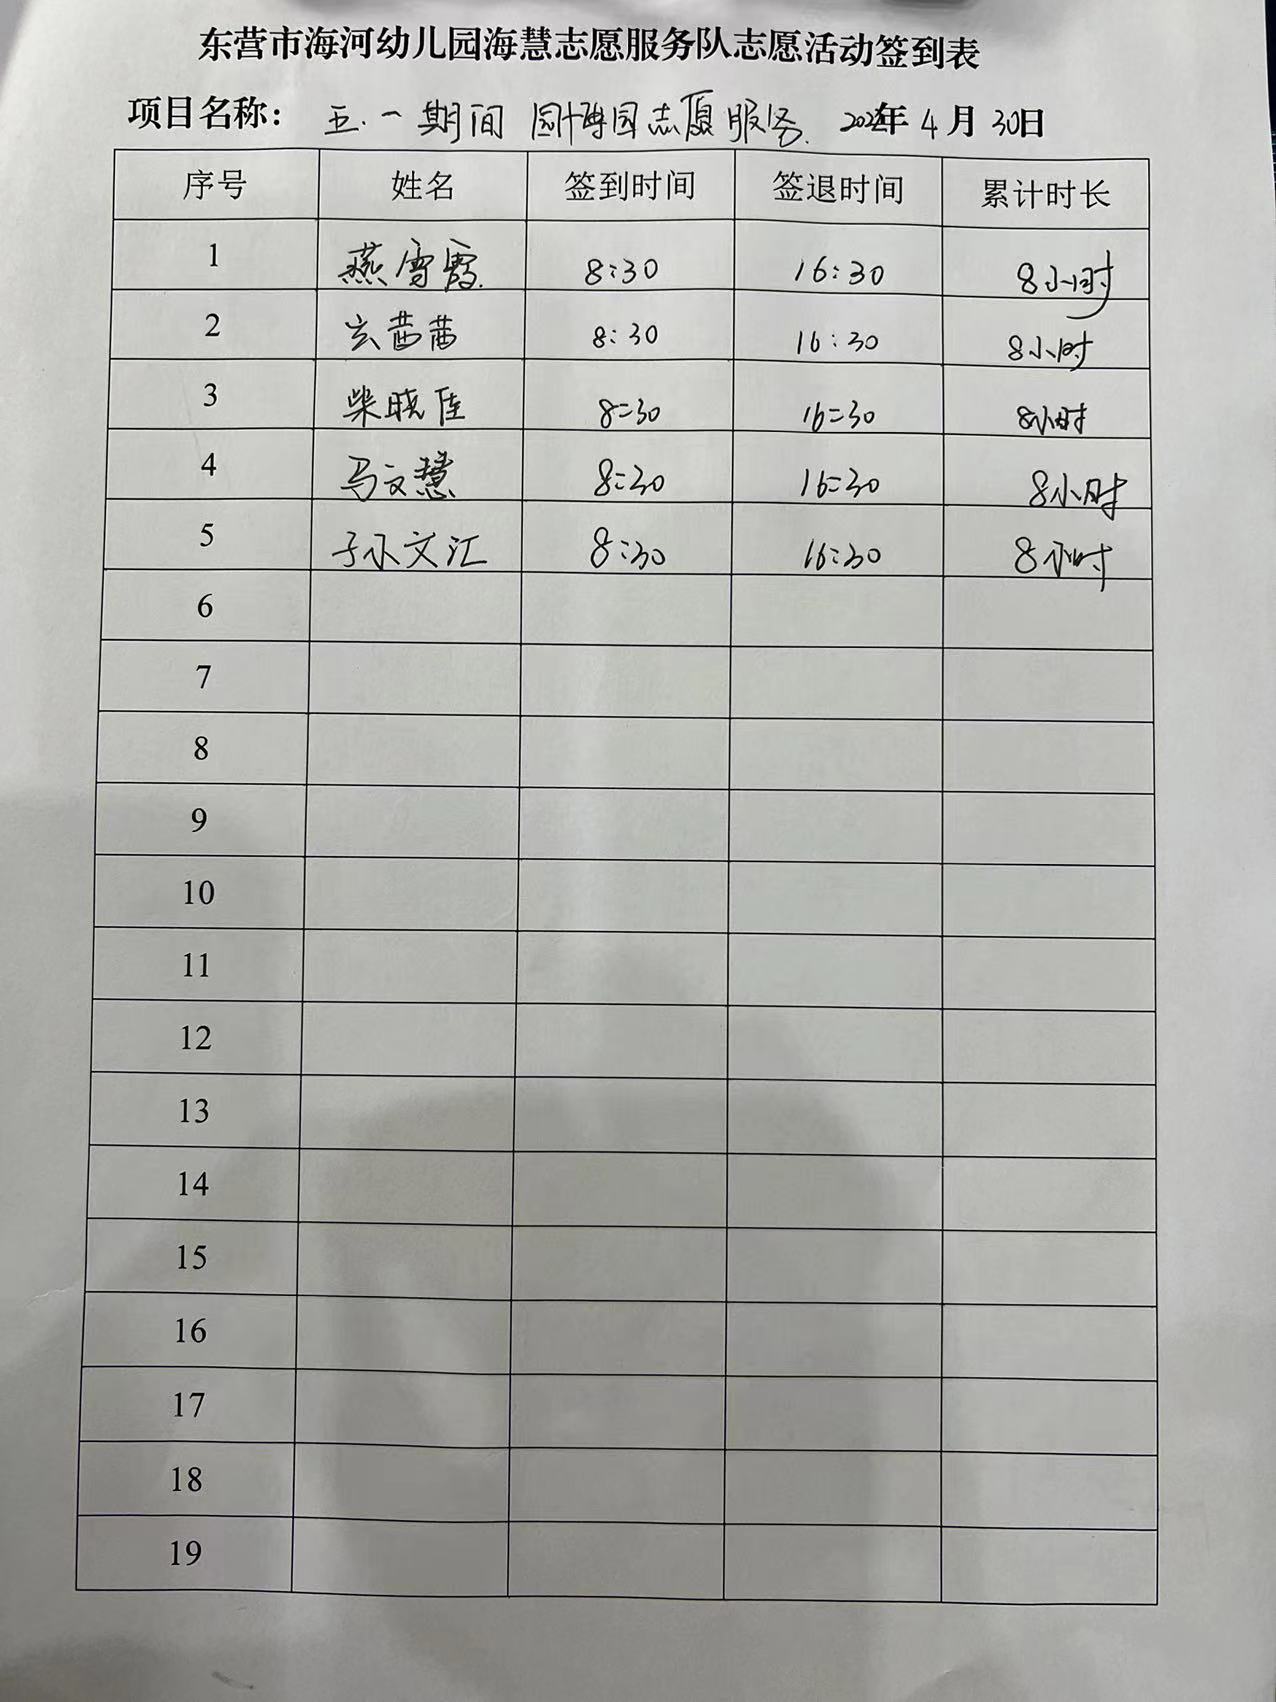 东营市海河幼儿园海慧志愿服务队志愿活动签到表
项目名称： 五.一期间 园博园志愿服务. 年 4 月 30日
序号 姓名 签到时间 签退时间 累计时长
1 燕雪霞 8:30 16:30 8小时
2 玄茜茜 8:30 16:30 8小时
3 柴晓佳 8:30 16:30 8小时
4 马文慧 8:30 16:30 8小时
5 孙文汇 8:30 16:30 8小时
6
7
8
9
10
11
12
13
14
15
16
17
18
19